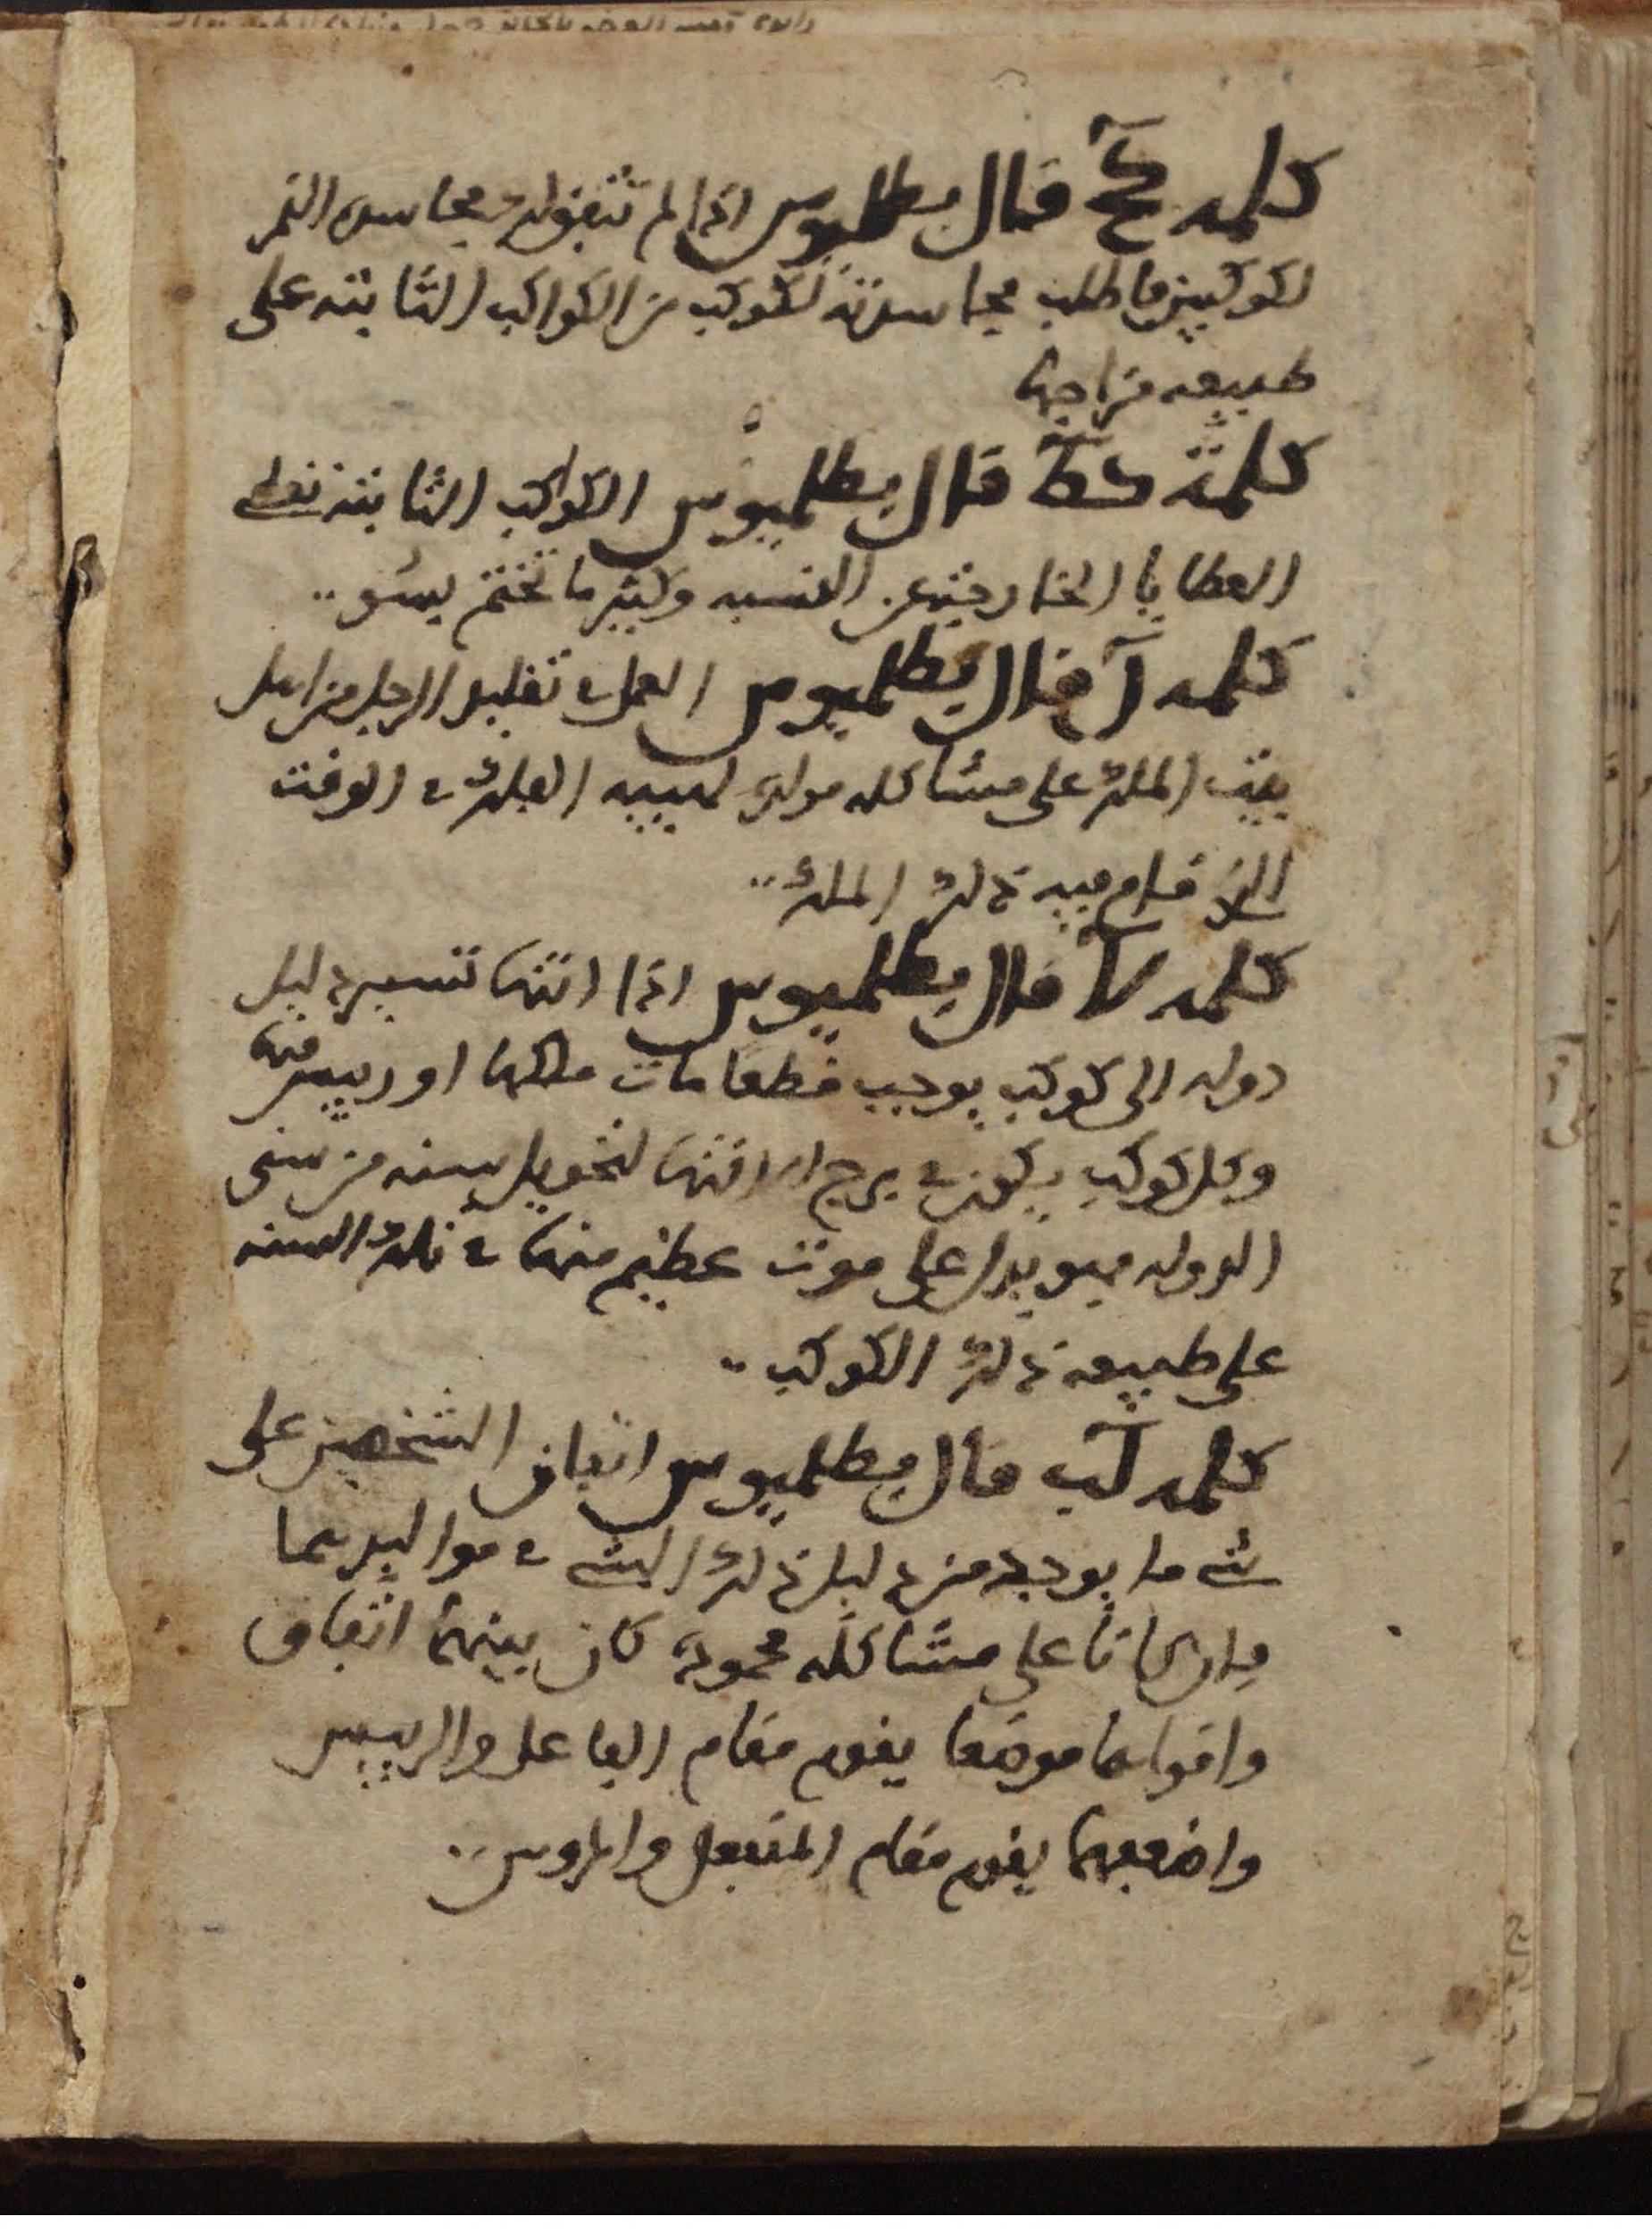 كلمه كح قال بطلميوس اذا لم تتفق لك مجاسدة القمر
لكوكبين فاطلب مجاسدته لكوكب من الكواكب الثابته على
طبيعه مزاجها
كلمة كط قال بطلميوس الكواكب الثابته تعطي
العطايا الخارجة عن النسبه وكثير ما تختم بسو
كلمه ل قال بطلميوس اعمل في تقليد الرجل من اهل
بيت الملك على مشاكله مولده لهيئه الفلك في الوقت
الذي قام فيه ذلك الملك
كلمه لا قال بطلميوس اذا انتها تسيير دليل
دوله الى كوكب يوجب قطعا مات ملكها او رييس منها
وكل كوكب يكون في برج الانتها لتحويل سنه من سني
الدوله فهو يدل على موت عظيم منها في تلك السنه
على طبيعه ذلك الكوكب
كلمه لب قال بطلميوس اتفاق الشخصين على
شي ما يوجد من دليل ذلك الشي في مواليدهما
فان كانا على مشاكله محمودة كان بينهما اتفاق
واقواهما موضعا يقوم مقام الفاعل والرييس
واضعفهما يقوم مقام المنفعل والمروس